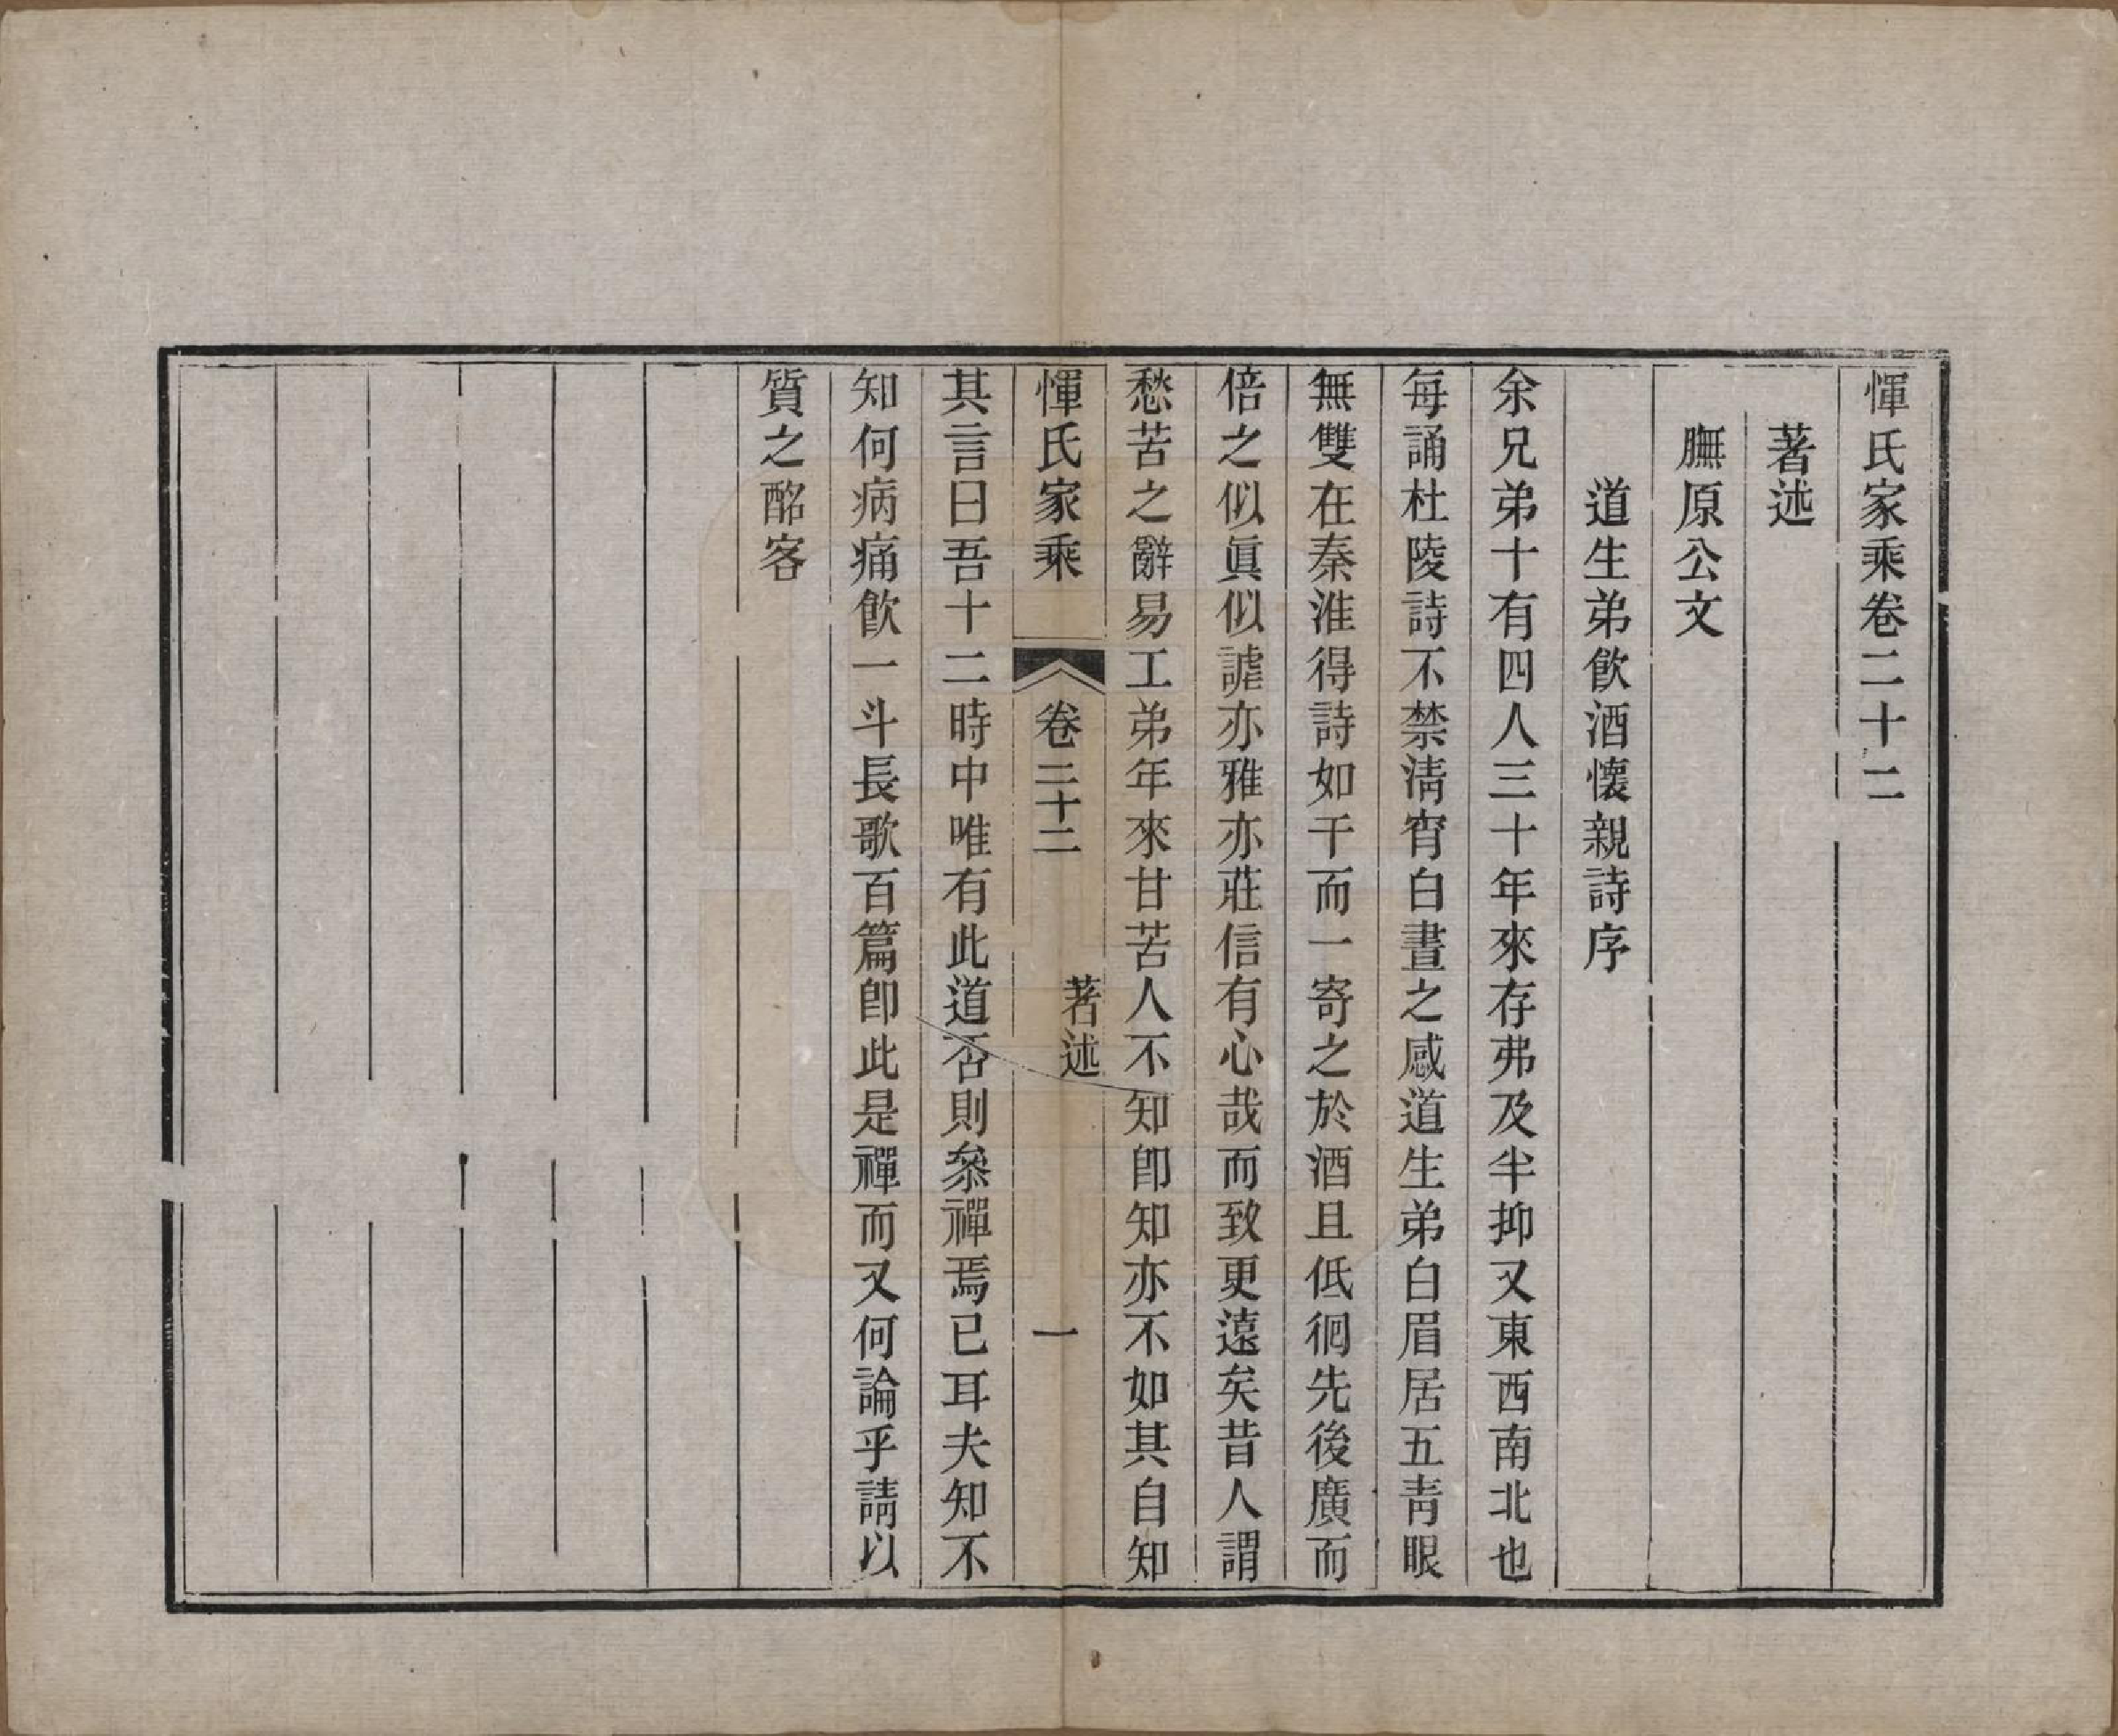 惲氏家乘卷二十二
著述
膴原公文
道生弟飮酒懷親詩序
余兄弟十有四人三十年來存弗及半抑又東西南北也
每誦杜陵詩不禁淸宵白晝之感道生弟白眉居五靑眼
無雙在秦淮得詩如干而一寄之於酒且低徊先後廣而
倍之似眞似謔亦雅亦莊信有心哉而致更遠矣昔人謂
愁苦之辭易工弟年來甘苦人不知卽知亦不如其自知
惲氏家乘 卷二十二 著述 一
其言曰吾十二時中唯有此道否則叅禪焉已耳夫知不
知何病痛飮一斗長歌百篇卽此是禪而又何論乎請以
質之酩客